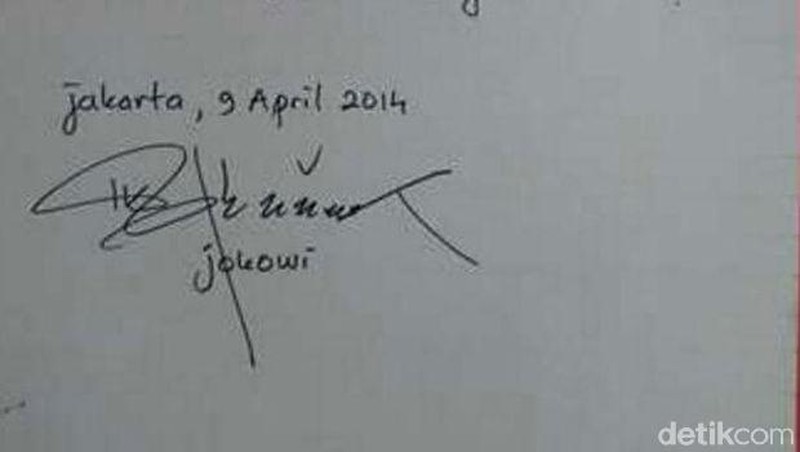 jakarta, 9 April 2014
jokowi
detikcom